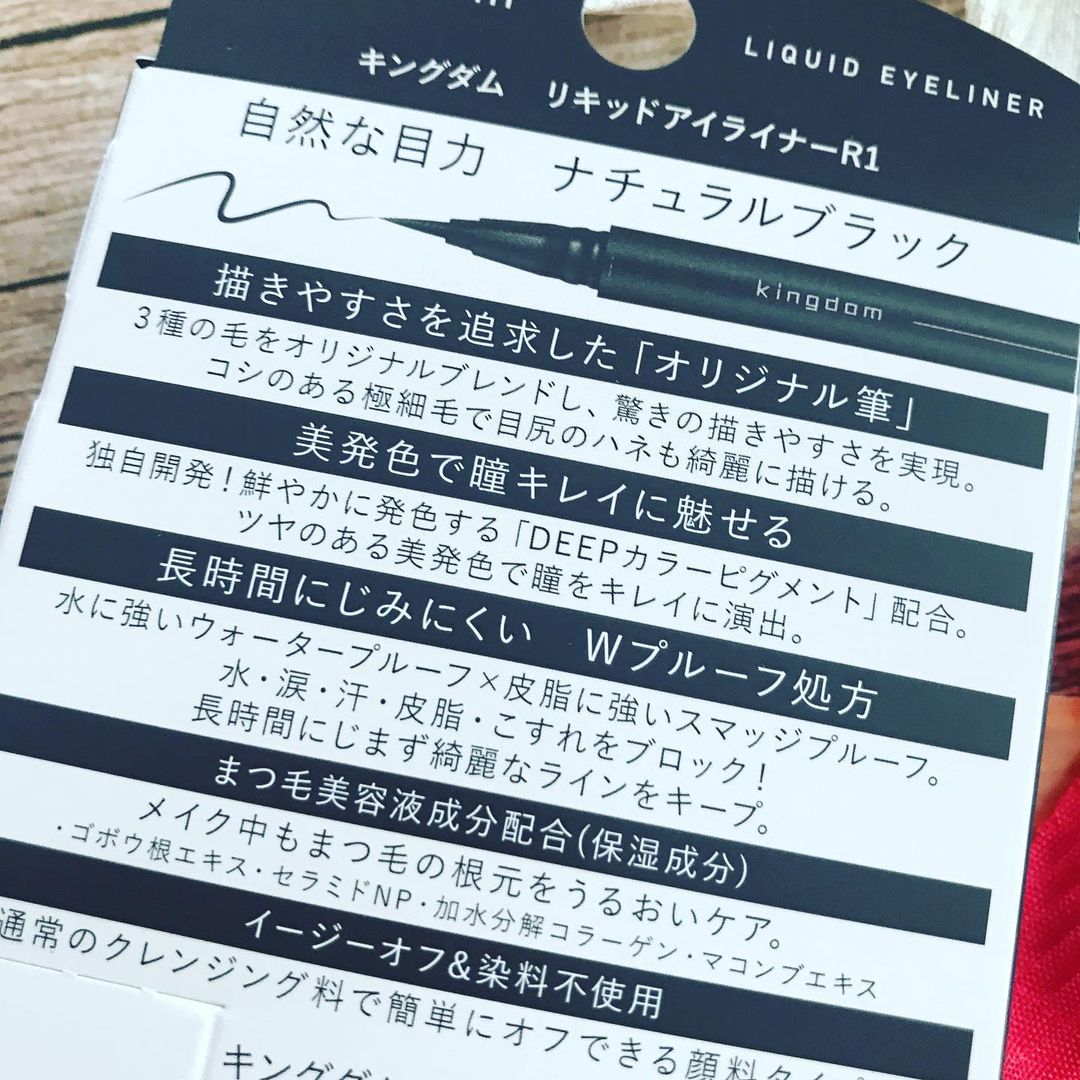 LIQUID EYELINER
キングダム リキッドアイライナーR1
自然な目力 ナチュラルブラック
kingdom
描きやすさを追求した「オリジナル筆」
3種の毛をオリジナルブレンドし、驚きの描きやすさを実現。
コシのある極細毛で目尻のハネも綺麗に描ける。
美発色で瞳キレイに魅せる
独自開発!鮮やかに発色する「DEEPカラーピグメント」配合。
ツヤのある美発色で瞳をキレイに演出。
長時間にじみにくい Wプルーフ処方
水に強いウォータープルーフ×皮脂に強いスマッジプルーフ。
水・涙・汗・皮脂・こすれをブロック!
長時間にじまず綺麗なラインをキープ。
まつ毛美容液成分配合(保湿成分)
メイク中もまつ毛の根元をうるおいケア。
・ゴボウ根エキス・セラミドNP・加水分解コラーゲン・マコンブエキス
イージーオフ&染料不使用
通常のクレンジング料で簡単にオフできる顔料タイプ
キングダ